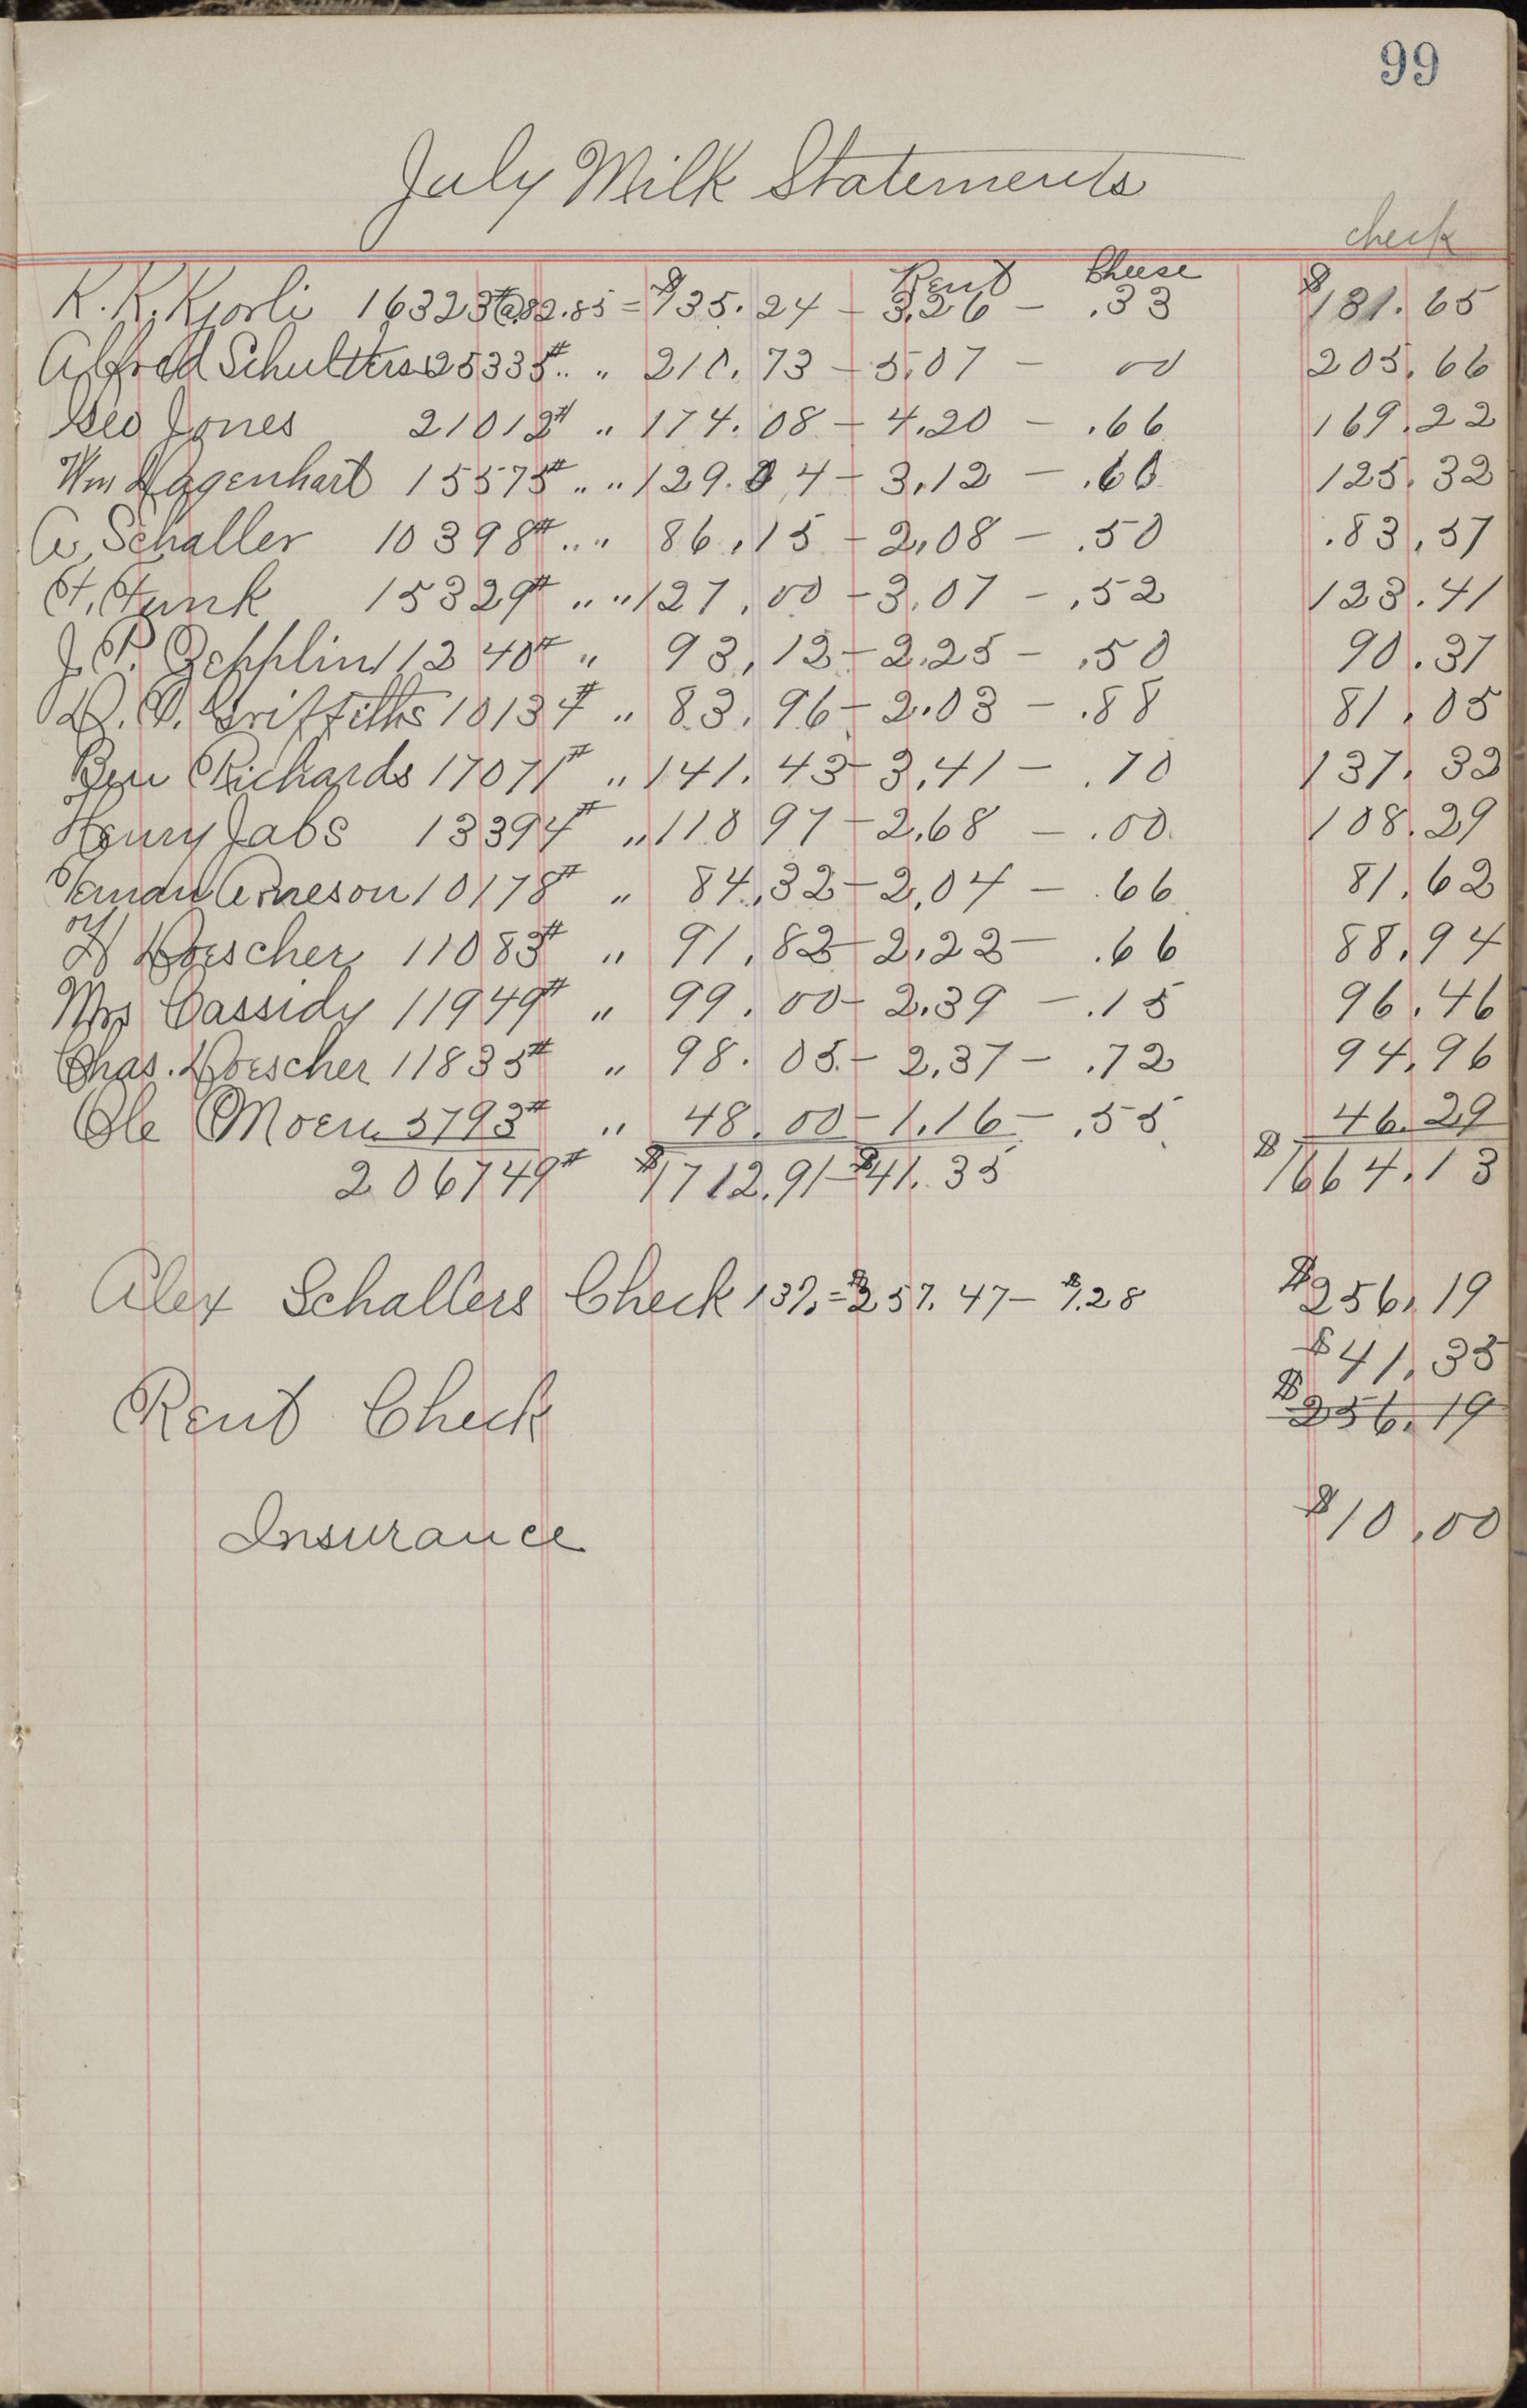 99
July Milk Statements
check
Rent Cheese
K. K. Kjorli 16323# @ 82.85 = $135.24 - 3.26 - .33 $131.65
Alfred Schulters 25335# " " 210.73 - 5.07 - 00 205.66
Geo Jones 21012# " 174.08 - 4.20 - .66 169.22
Wm Hagenhart 15575# " " 129.04 - 3.12 - .60 125.32
A. Schaller 10398# " " 86.15 - 2.08 - .50 .83.57
H. Funk 15329# " " 127.00 - 3.07 - .52 123.41
J. P. Zepplin 11240# " 93.12 - 2.25 - .50 90.37
D. D. Griffiths 10134# " 83.96 - 2.03 - .88 81.05
Ben Richards 17071# " 141.43 - 3.41 - .70 137.32
Henry Jabs 13394# " 110 97 - 2.68 - .00 108.29
Arneson 10178# " 84.32 - 2.04 - .66 81.62
H Doescher 11083# " 91.82 - 2.22 - .66 88.94
Mrs Cassidy 11949# " 99.00 - 2.39 - .15 96.46
Chas. Doescher 11835# " 98.05 - 2.37 - .72 94.96
Ole Moen 5793# " 48.00 - 1.16 - .55 46.29
206749# $1712.91 - $41.35 $1664.13
Alex Schallers Check 13% = $257.47 - $1.28 $256.19
$41.35
Rent Check $256.19
Insurance $10.00